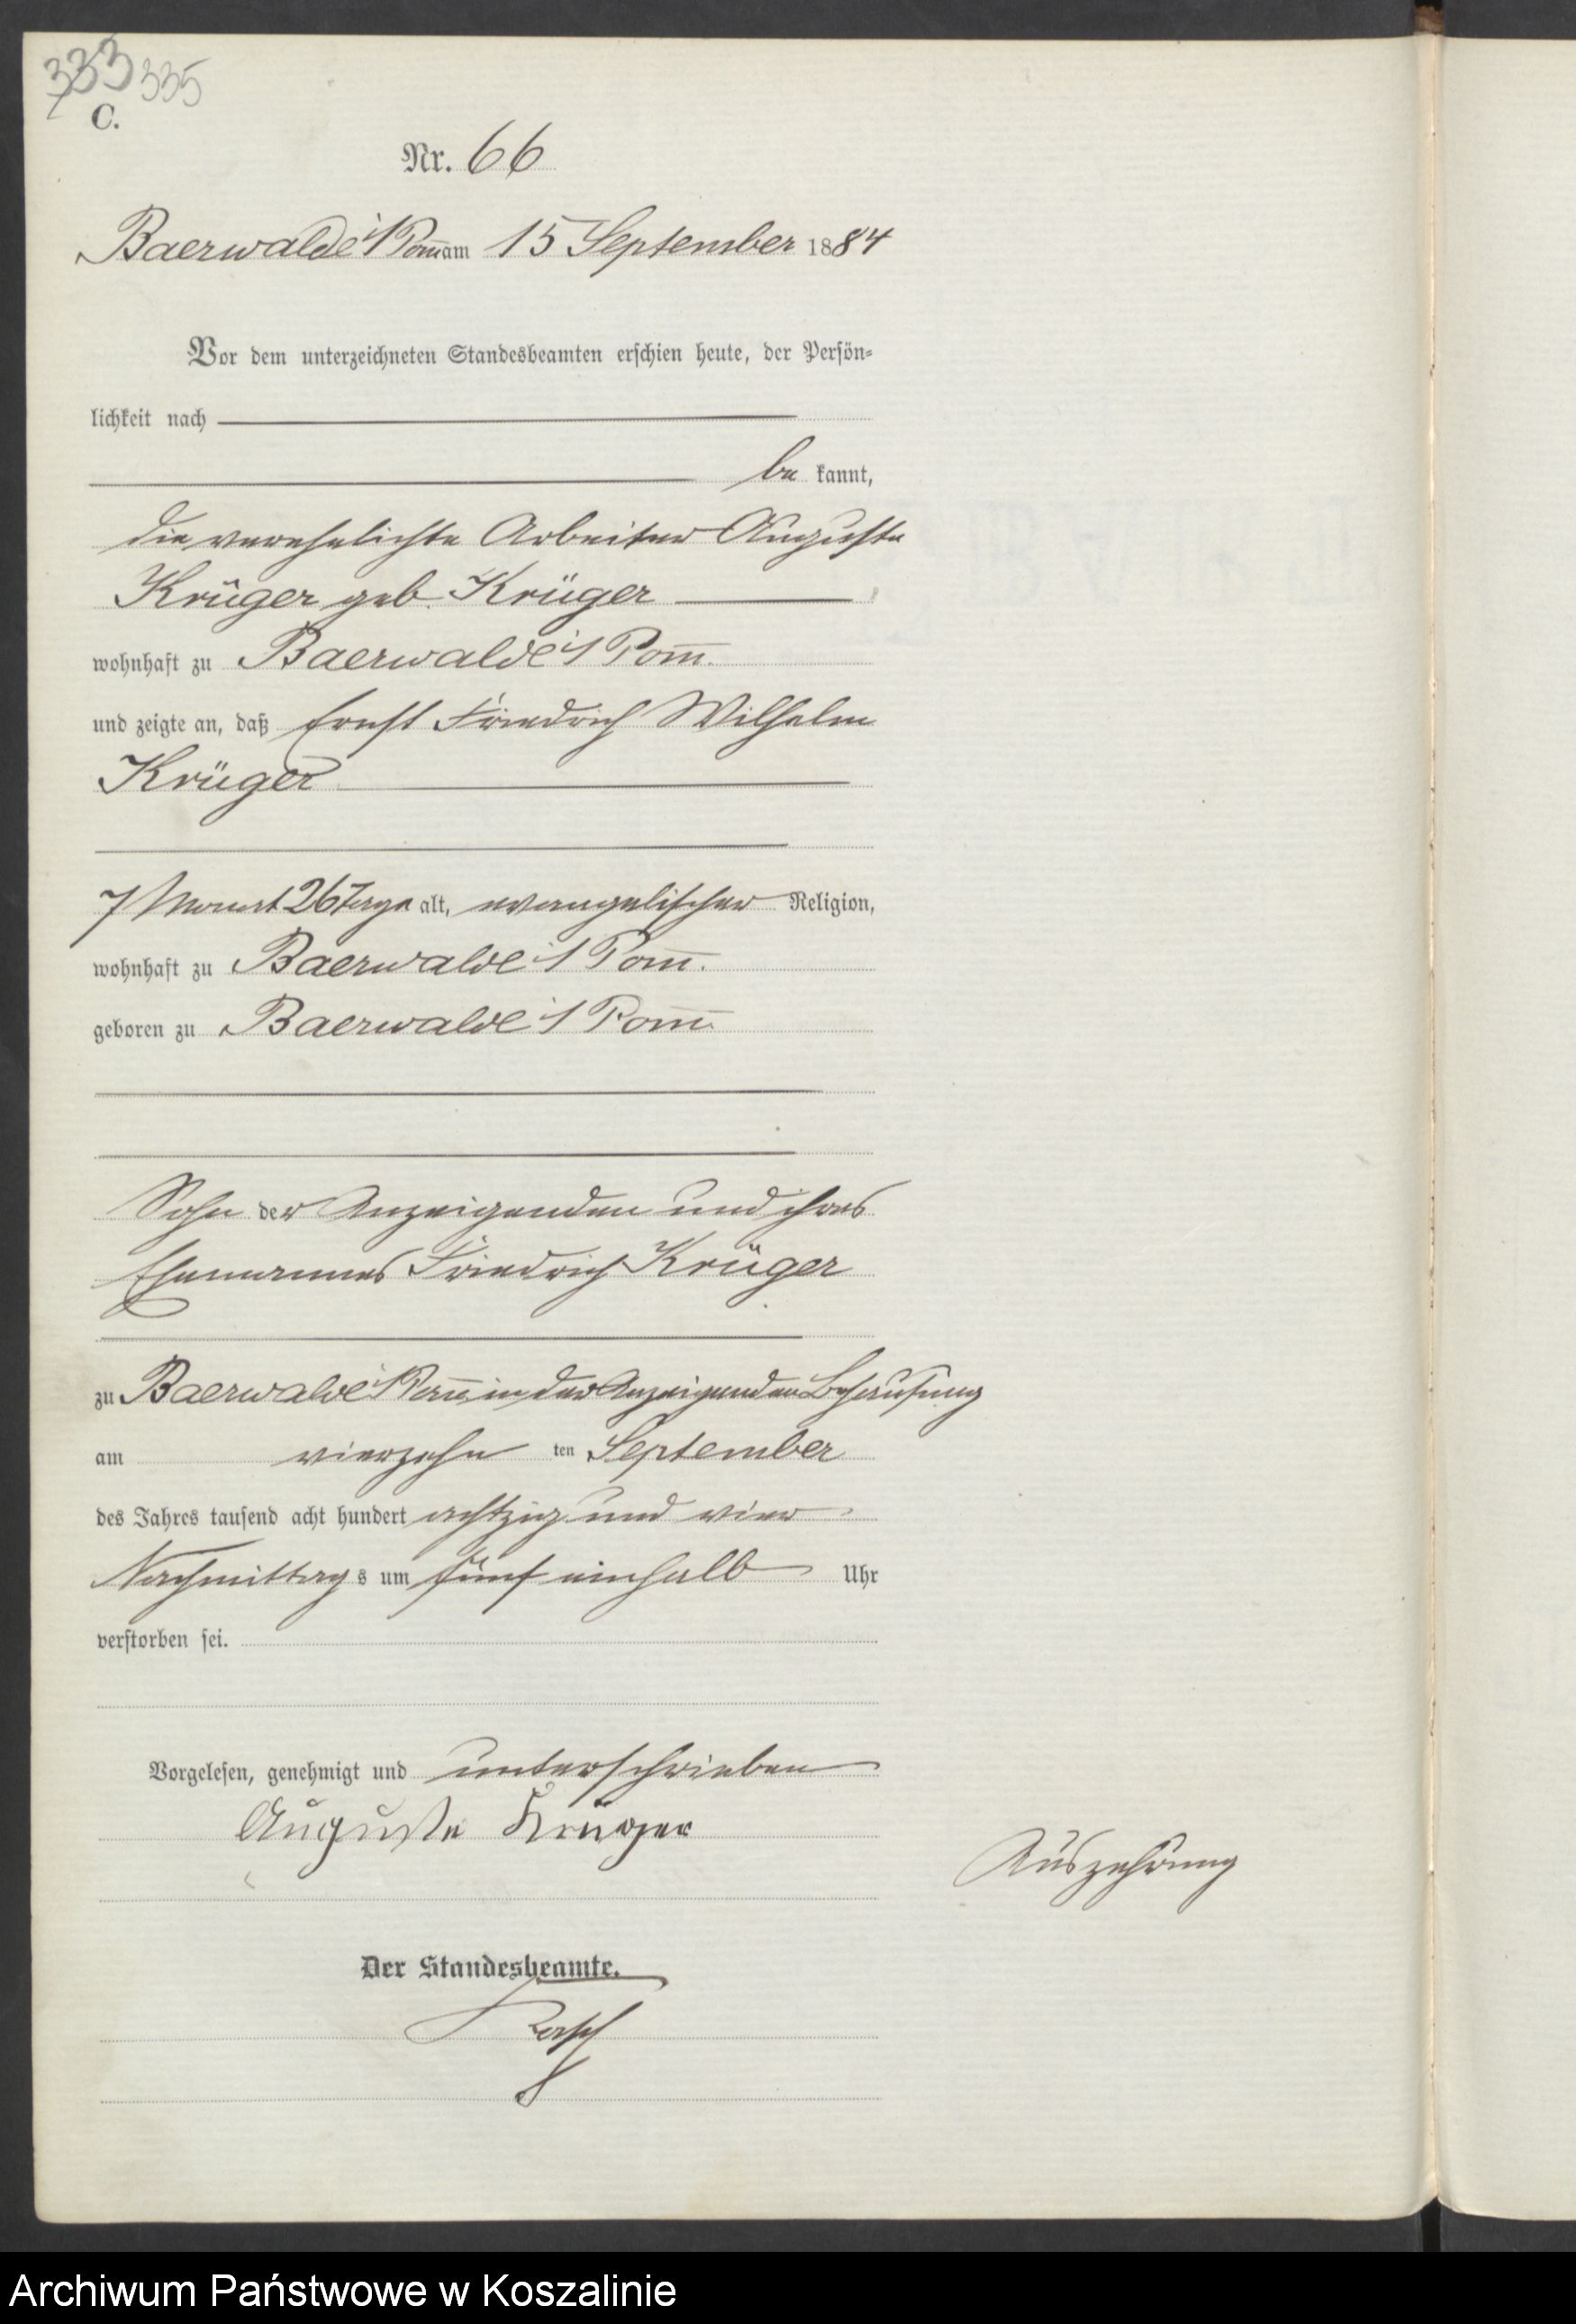 333 335
C.
Nr. 66
Baerwalde i/Pom̄ am 15 September 1884
Vor dem unterzeichneten Standesbeamten erschien heute, der Persön-
lichkeit nach
be kannt,
die verehelichte Arbeiter Auguste
Krüger geb. Krüger
wohnhaft zu Baerwalde i/Pom̄.
und zeigte an, daß Ernst Friedrich Wilhelm
Krüger
7 Monat 26 Tage alt, evangelischer Religion,
wohnhaft zu Baerwalde i/Pom̄.
geboren zu Baerwalde i/Pom̄.
Sohn der Anzeigenden und ihres
Ehemannes Friedrich Krüger
zu Baerwalde i/Pom̄ in der Anzeigenden Behausung
am vierzehn ten September
des Jahres tausend acht hundert achtzig und vier
Nachmittag s um fünf einhalb Uhr
verstorben sei.
Vorgelesen, genehmigt und unterschrieben
Auguste Krüger
Auszehrung
Der Standesbeamte.
Archiwum Państwowe w Koszalinie